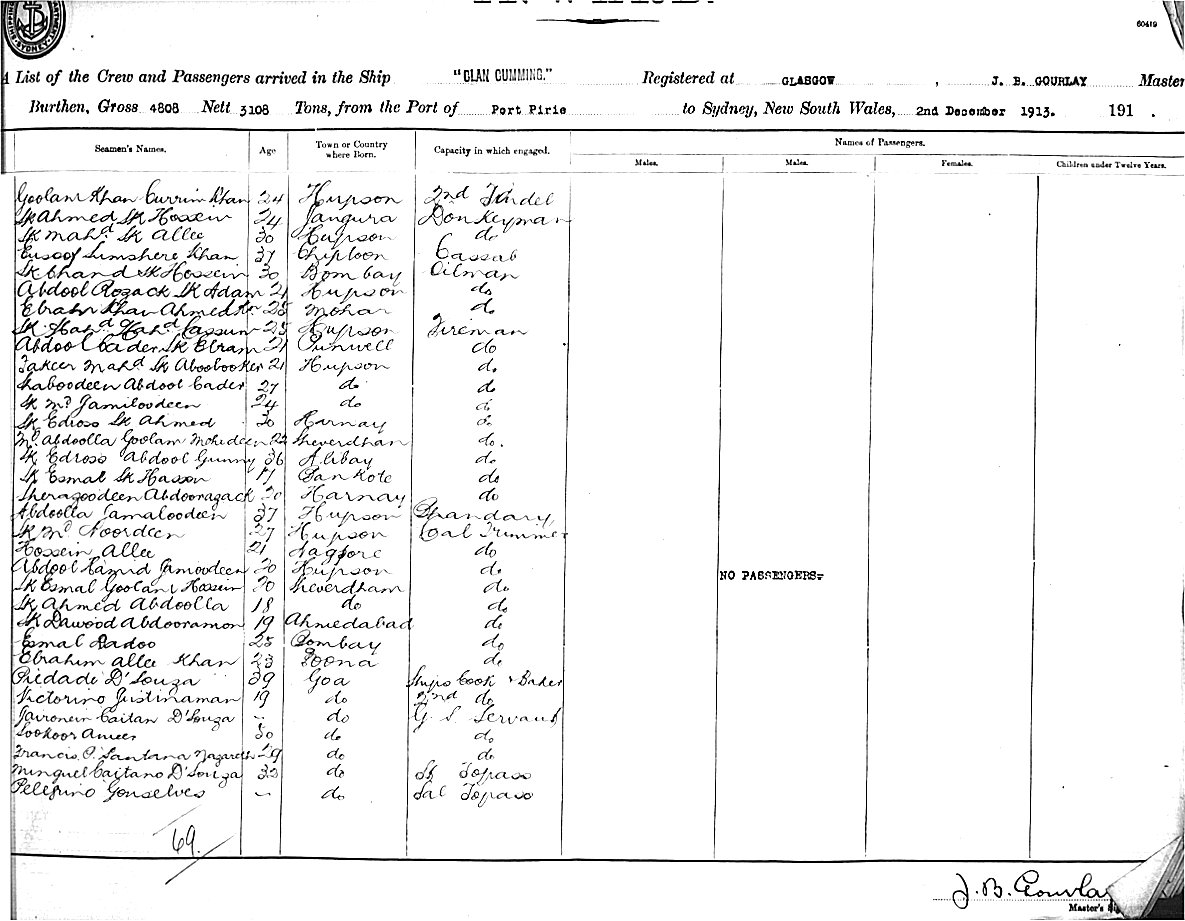 60419
A List of the Crew and Passengers arrived in the Ship "CLAN CUMMING." Registered at GLASGOW, J. B. GOURLAY Master
Burthen, Gross 4808 Nett 3108 Tons, from the Port of Port Pirie to Sydney, New South Wales, 2nd December 1913. 191 .
Seamen's Names. Age Town or Country where Born. Capacity in which engaged. Names of Passengers.
Males. Males. Females. Children under Twelve Years.
Goolam Khan Currim Khan 24 Hupson 2nd Tindel
Sk Ahmed Sk Hossein 24 Jangura Donkeyman
Sk Mahd Sk Allee 30 Hupson do
Eusoof Sumshere Khan 37 Chiploon Cassab
Sk Chand Sk Hossein 30 Bombay Oilman
Abdool Rozack Sk Adam 21 Hupson do
Ebrahi Khan Ahmed Kn 25 Mohar do
Sk Mahd Cassum 25 Hupson Fireman
Abdool Cader Sk Ebram 21 do
Fakeer Mahd Sk Aboobooker 21 Hupson do
Shaboodeen Abdool Cader 27 do do
Sk Md Jamiloodeen 24 do do
Sk Edross Sk Ahmed 30 Harnay do
Md Abdoolla Goolam Mohideen 22 Sheverdhan do.
Sk Edross Abdool Gunny 36 Alibay do
Sk Esmal Sk Hassan Bankote do
Sherazoodeen Abdoorazack 20 Harnay do
Abdoolla Jamaloodeen 37 Hupson Bhandary
Sk Md Noordeen 27 Hupson Coal Trimmer
Hossein Allee 21 Nagpore do
Abdool Hamid Jamoodeen 20 Hupson do
Sk Esmal Goolam Hossein 20 Sheverdham do
NO PASSENGERS.
Sk Ahmed Abdoolla 18 do do
Sk Dawood Abdooramon 19 Ahmedabad do
Esmal Dadoo 25 Bombay do
Ebrahim Allee Khan 23 Poona do
Piedade D'Souza 39 Goa Ships Cook & Baker
Victorino Justinaman 19 do 2nd do
Caitan D'Souza - do G. S. Servant
Sookoor Ameer 30 do do
Francis P. Santana Nazareth 29 do do
Minguel Caitano D'Souza 33 do Topass
Pelegrino Gonselves - do Topass
69.
J. B. Gourla
Master's